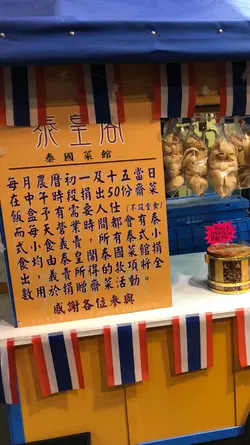 泰皇閣
泰國菜館
每月農曆初一及十五當日
在中午時段捐出50份齋菜
飯盒予有需人仕(不設堂食)
而每天營業時間都會有泰
式小食義賣，所有泰式小
食均由泰皇閣泰國菜館捐
出，義賣所得的款項將全
數用於捐贈齋菜活動。
感謝各位參與